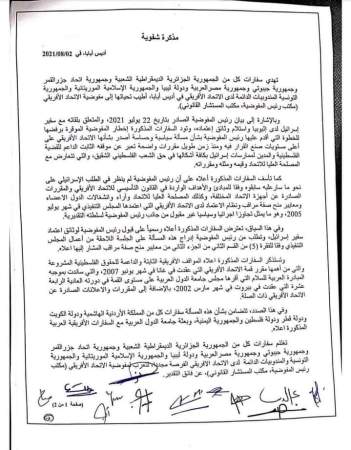 مذكرة شفوية
أديس أبابا، في 2021/08/02
تهدي سفارات كل من الجمهورية الجزائرية الديمقراطية الشعبية وجمهورية اتحاد جزر القمر
وجمهورية جيبوتي وجمهورية مصر العربية ودولة ليبيا والجمهورية الإسلامية الموريتانية والجمهورية
التونسية المندوبيات الدائمة لدى الاتحاد الأفريقي في أديس أبابا، أطيب تحياتها إلى مفوضية الاتحاد الأفريقي
(مكتب رئيس المفوضية، مكتب المستشار القانوني)
وبالإشارة إلى بيان رئيس المفوضية الصادر بتاريخ 22 يوليو 2021، والمتعلق بلقائه مع سفير
إسرائيل لدى إثيوبيا واستلام وثائق إعتماده، وتود السفارات المذكورة إخطار المفوضية الموقرة برفضها
للخطوة التي أقدم عليها رئيس المفوضية بشأن مسألة سياسية وحساسة أصدر بشأنها الاتحاد الأفريقي على
أعلى مستويات صنع القرار فيه منذ زمن طويل مقررات واضحة تعبر عن موقفه الثابت الداعم للقضية
الفلسطينية والمدين لممارسات إسرائيل بكافة أشكالها في حق الشعب الفلسطيني الشقيق، والتي تتعارض مع
المصلحة العليا للاتحاد وقيمه ومثله ومقرراته.
كما تأسف السفارات المذكورة أعلاه على أن رئيس المفوضية لم ينظر في الطلب الإسرائيلي على
نحو ما سار عليه سابقوه وفقا للمبادئ والأهداف الواردة في القانون التأسيسي للاتحاد الأفريقي والمقررات
الصادرة عن أجهزة الاتحاد المختلفة، وكذلك المصلحة العليا للاتحاد وآراء وانشغالات الدول الأعضاء
ومعايير منح صفة مراقب ونظام الإعتماد لدى الاتحاد الأفريقي التي اعتمدها المجلس التنفيذي في يوليو
2005، وهو ما يمثل تجاوزا اجرائيا وسياسيا غير مقبول من جانب رئيس المفوضية لسلطته التقديرية.
وفي هذا السياق، تعترض السفارات المذكورة أعلاه رسميا على قبول رئيس المفوضية لوثائق إعتماد
سفير إسرائيل، وتطلب من رئيس المفوضية إدراج هذه المسألة على الجلسة اللاحقة من أعمال المجلس
وفقا للفقرة (5) من القسم الثاني من الجزء الثاني من معايير منح صفة مراقب المشار إليها أعلاه.
وتستذكر السفارات المذكورة أعلاه المواقف الأفريقية الثابتة والداعمة للحقوق الفلسطينية المشروعة
والتي من أهمها مقرر قمة الاتحاد الأفريقي التي عقدت في غانا في شهر يوليو 2007، والتي ساندت بموجبه
المبادرة العربية للسلام التي أقرها مجلس جامعة الدول العربية على مستوى القمة في دورته العادية الرابعة
عشرة التي عقدت في بيروت في شهر مارس 2002، بالإضافة إلى المقررات والاعلانات الصادرة عن
الاتحاد الأفريقي ذات الصلة.
وفي هذا الصدد، تتضامن بشأن هذه المسألة سفارات كل من المملكة الأردنية الهاشمية ودولة الكويت
ودولة قطر ودولة فلسطين والجمهورية اليمنية، وبعثة جامعة الدول العربية مع السفارات الأفريقية العربية
المذكورة أعلاه.
تغتنم سفارات كل من الجمهورية الجزائرية الديمقراطية الشعبية وجمهورية اتحاد جزر القمر
وجمهورية جيبوتي وجمهورية مصر العربية ودولة ليبيا والجمهورية الإسلامية الموريتانية والجمهورية
التونسية والمندوبيات الدائمة لدى الاتحاد الأفريقي الفرصة مجددا، لتعرب لمفوضية الاتحاد الأفريقي (مكتب
رئيس المفوضية، مكتب المستشار القانوني)، عن فائق التقدير.
صفحة 1 من 2